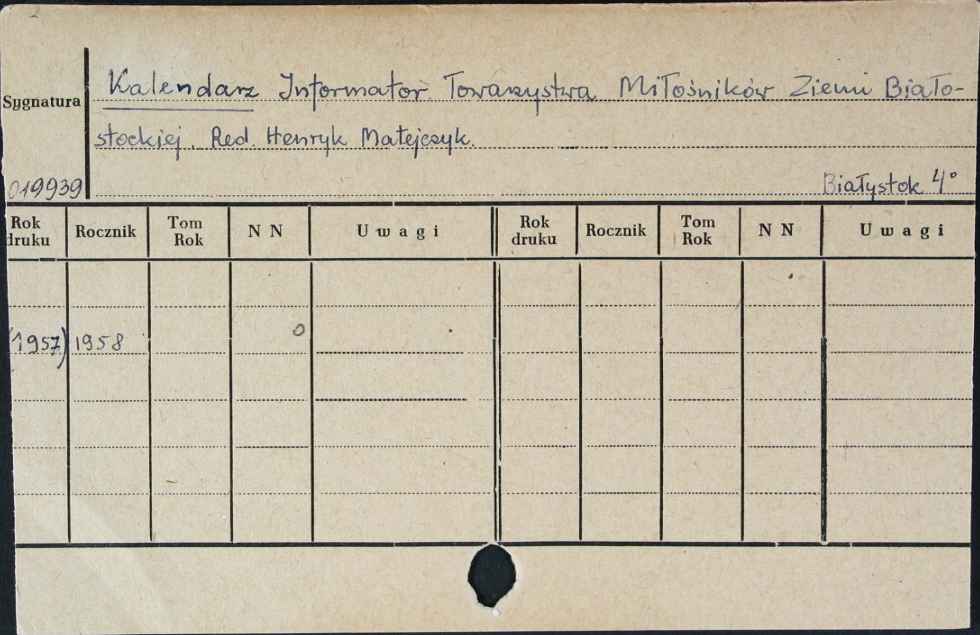 Kalendarz Informator Towarzystwa Miłośników Ziemi Biało-
Sygnatura
stockiej. Red. Henryk Matejczyk.
019939
Białystok 4°
Rok druku Rocznik Tom Rok N N Uwagi Rok druku Rocznik Tom Rok N N Uwagi
(1957) 1958 0